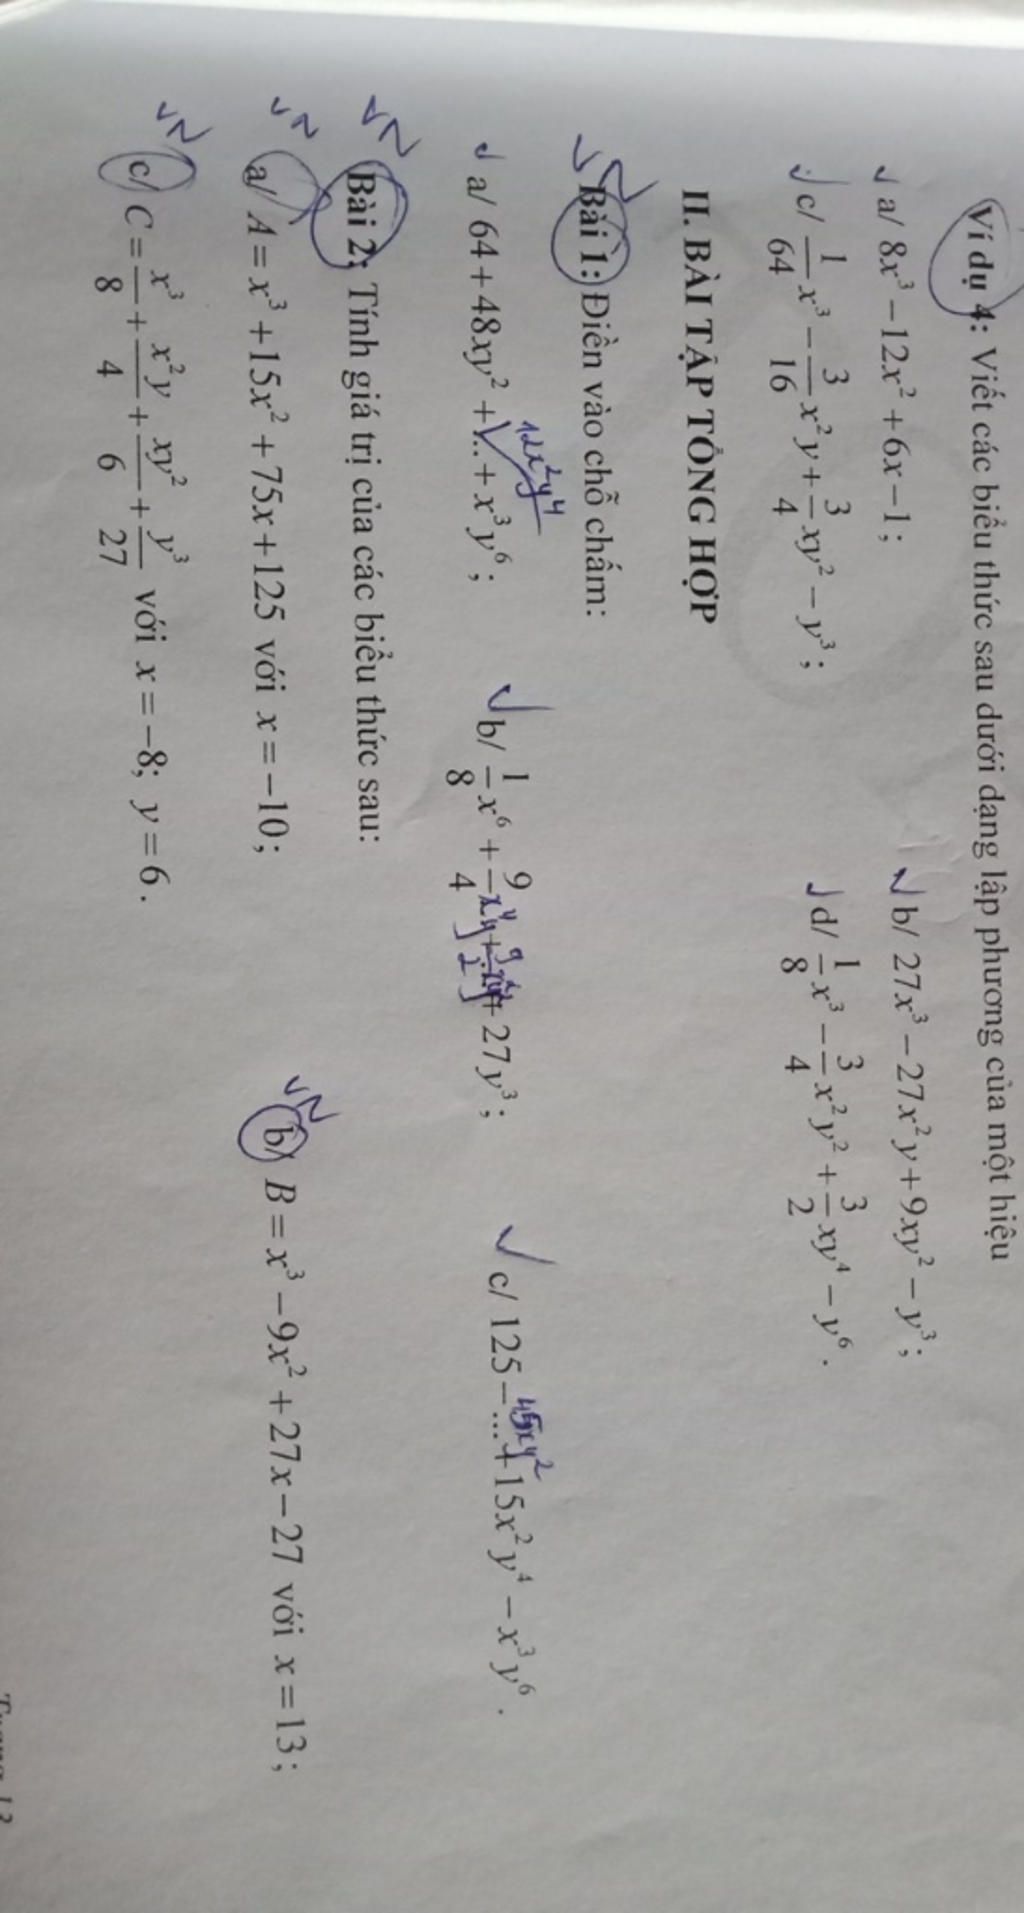 Ví dụ 4: Viết các biểu thức sau dưới dạng lập phương của một hiệu
a/ 8x³ − 12x² + 6x − 1; b/ 27x³ − 27x²y + 9xy² − y³;
c/ 1/64 x³ − 3/16 x²y + 3/4 xy² − y³; d/ 1/8 x³ − 3/4 x²y² + 3/2 xy⁴ − y⁶.
II. BÀI TẬP TỔNG HỢP
Bài 1: Điền vào chỗ chấm:
12x²y⁴ 45xy²
a/ 64 + 48xy² + ... + x³y⁶; b/ 1/8 x⁶ + 9/4 x⁴y + 27y³; c/ 125 − ... + 15x²y⁴ − x³y⁶.
Bài 2: Tính giá trị của các biểu thức sau:
a/ A = x³ + 15x² + 75x + 125 với x = −10; b/ B = x³ − 9x² + 27x − 27 với x = 13;
c/ C = x³/8 + x²y/4 + xy²/6 + y³/27 với x = −8; y = 6.